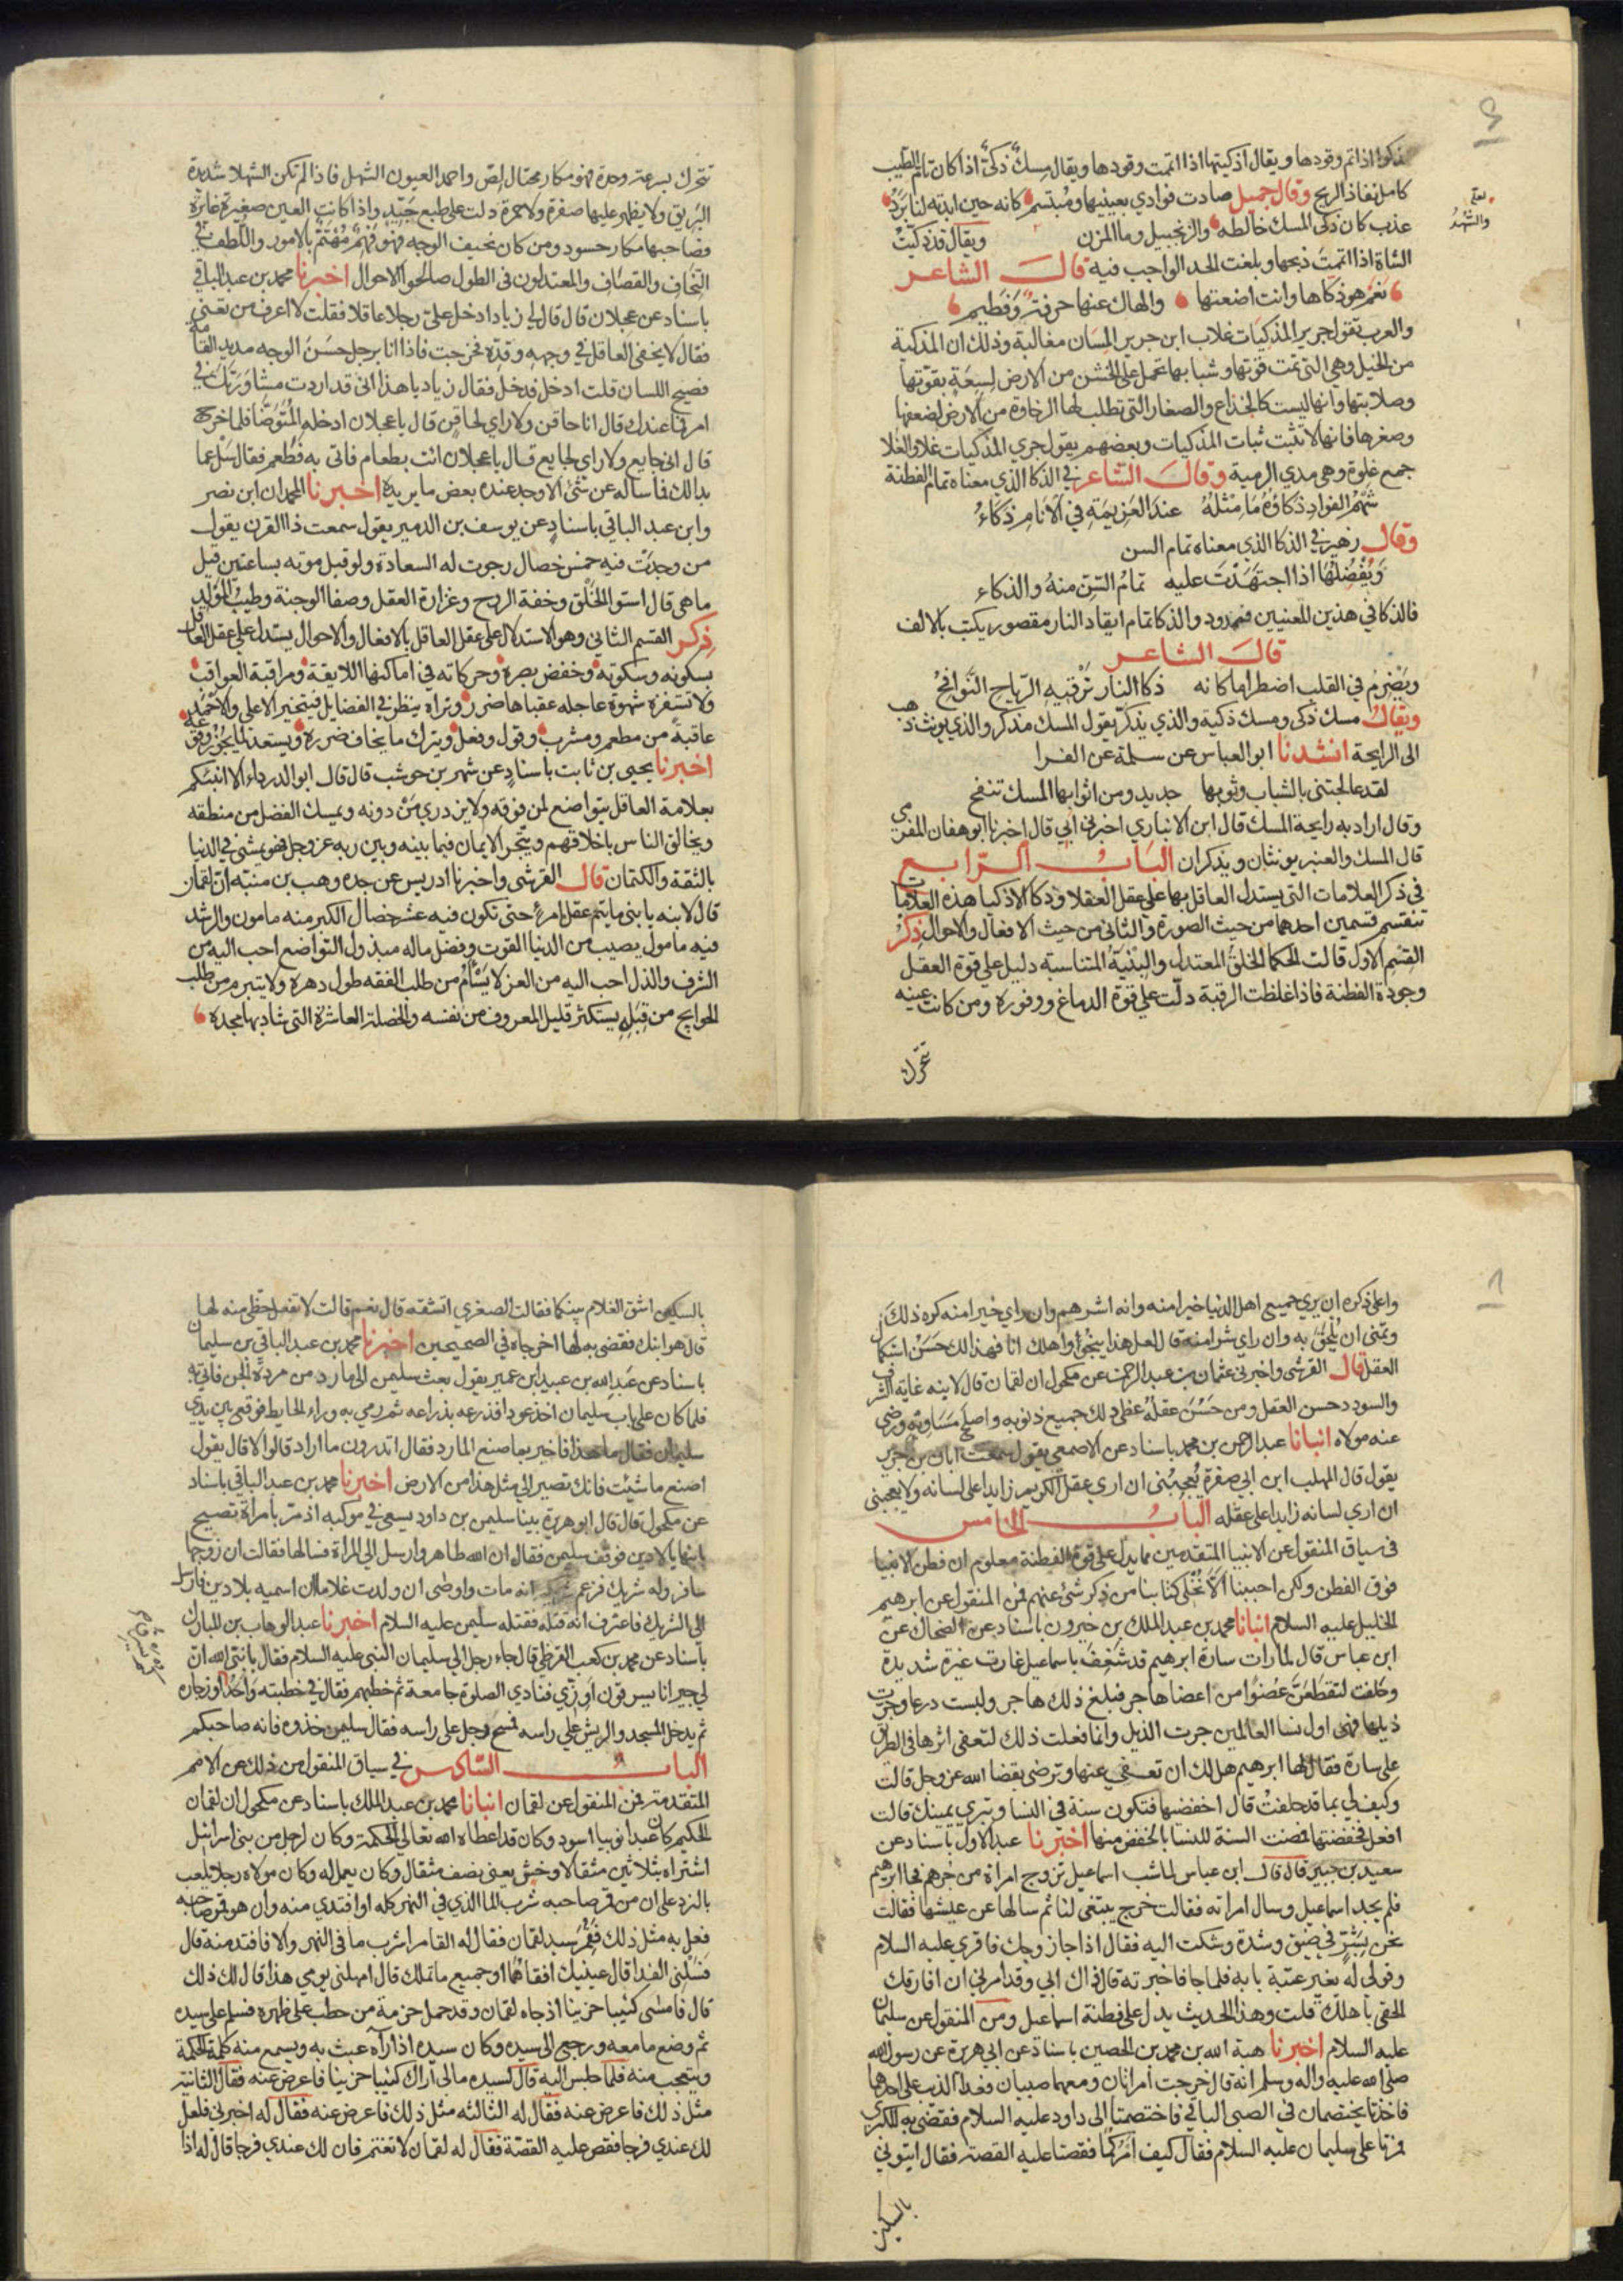 فذكوا اذا تم وقودها ويقال اذكيتها اذا اتممت وقودها ويقال مسك ذكي اذا كان تام الطيب
كامل نفاذ الريح وقال جميل صادت فوادي بعينيها ومبتسم كانه حين ابدته لنا برد
عذب كان ذكي المسك خالطه والزنجبيل وما المزن ويقال قد ذكيت
والشهد
الشاة اذا اتممت ذبحها وبلغت الحد الواجب فيه قال الشاعر
نعم هو ذكاها وانت اضعتها والهاك عنها خرفة وفطيم
والعرب تقول جري المذكيات غلاب ابن جرير المسان مغالبة وذلك ان المذكية
من الخيل وهي التي تمت قوتها وشبابها تحمل على الخشن من الارض لسعة بقوتها
وصلابتها وانها ليست كالجذاع والصغار التي تطلب لها الرخاوة من الارض لضعفها
وصغرها فانها لا تثبت ثبات المذكيات وبعضهم يقول جري المذكيات غلاء والغلا
جمع غلوة وهي مدي الرمية وقال الشاعر في الذكا الذي معناه تمام الفطنة
شهم الفواد ذكاؤه ما مثله عند العزيمة في الانام ذكاء
وقال زهير في الذكا الذي معناه تمام السن
ويفضلها اذا اجتهدت عليه تمام السن منه والذكاء
فالذكا في هذين المعنيين ممدود والذكا تمام ايقاد النار مقصور يكتب بالالف
قال الشاعر
ويضرم في القلب اضطراما كانه ذكا النار ترفيه الرياح النوافح
ويقال مسك ذكي ومسك ذكية والذي يذكر يقول المسك مذكر والذي يونث ذهب
الى الرايحة انشدنا ابو العباس عن سلمة عن الفرا
لقد عالجتني بالشباب وثوبها جديد ومن اثوابها المسك تنفح
وقال اراد به رايحة المسك قال ابن الانباري اخبرني ابي قال اخبرنا ابو هفان المهزمي
قال المسك والعنبر يونثان ويذكران الباب الرابع
في ذكر العلامات التي يستدل العاقل بها على عقل العقلا وذكا الاذكيا هذه العلامات
تنقسم قسمين احدهما من حيث الصورة والثاني من حيث الافعال والاحوال ذكر
القسم الاول قالت الحكما الخلق المعتدل والبنية المتناسبة دليل على قوة العقل
وجودة الفطنة فاذا غلظت الرقبة دلت على قوة الدماغ ووفوره ومن كانت عينه
تتحرك
تتحرك بسرعة وحدة فهو مكار محتال لص واحمد العيون الشهل فاذا لم تكن الشهلا شديدة
البريق ولا يظهر عليها صفرة ولا حمرة دلت على طبع جيد واذا كانت العين صغيرة غايرة
فصاحبها مكار حسود ومن كان نحيف الوجه فهو فهم مهتم بالامور واللطف في
النحاف والقصاف والمعتدلون في الطول صالحوا الاحوال اخبرنا محمد بن عبد الباقي
باسناد عن عجلان قال قال لي زياد ادخل علي رجلا عاقلا فقلت لا اعرف من تعني
فقال لا يخفى العاقل في وجهه وقده فخرجت فاذا انا برجل حسن الوجه مديد القامة
فصيح اللسان قلت ادخل فدخل فقال زياد يا هذا اني قد اردت مشاورتك في
امر فما عندك قال انا حاقن ولا راي لحاقن قال يا عجلان ادخله المتوضا فلما خرج
قال اني جايع ولا راي لجايع قال يا عجلان ائت بطعام فاتي به فطعم فقال سل عما
بدا لك فما ساله عن شئ الا وجد عنده بعض ما يريد اخبرنا المحمدان ابن نصر
وابن عبد الباقي باسناد عن يوسف بن الدمير يقول سمعت ذا القرن يقول
من وجدت فيه خمس خصال رجوت له السعادة ولو قبل موته بساعتين قيل
ما هي قال استوا الخلق وخفة الروح وغزارة العقل وصفا الوجنة وطيب المولد
ذكر القسم الثاني وهو الاستدلال على عقل العاقل بالافعال والاحوال يستدل على عقل العاقل
بسكوته وسكونه وخفض بصره وحركاته في اماكنها اللايقة ومراقبة العواقب
ولا تستفزه شهوة عاجله عقباها ضرر وتراه ينظر في الفضايل فيتخير الاعلى والاحمد
عاقبة من مطعم ومشرب وقول وفعل ويترك ما يخاف ضرره ويستعد لما يجوز وقوعه
اخبرنا يحيى بن ثابت باسناد عن شهر بن حوشب قال قال ابو الدرداء الا انبئكم
بعلامة العاقل يتواضع لمن فوقه ولا يزدري من دونه ويمسك الفضل من منطقه
ويخالق الناس باخلاقهم ويتحجر الايمان فيما بينه وبين ربه عز وجل فهو يمشي في الدنيا
بالثقة والكتمان قال القرشي واخبرنا ادريس عن جده وهب بن منبه ان لقمان
قال لابنه يا بني ما يتم عقل امرئ حتى تكون فيه عشر خصال الكبر منه مامون والرشد
فيه مامول يصيب من الدنيا القوت وفضل ماله مبذول التواضع احب اليه من
الشرف والذل احب اليه من العز لا يسأم من طلب الفقه طول دهره ولا يتبرم من طلب
الحوايج من قبله يستكثر قليل المعروف من نفسه والخصلة العاشرة التي شاد بها مجده
واعلى ذكره ان يري جميع اهل الدنيا خيرا منه وانه اشرهم وان راي خيرا منه كره ذلك
وتمنى ان يلحق به وان راي شرا منه قال لعل هذا ينجو واهلك انا فهذا لك حسن استكمال
العقل قال القرشي واخبرني عثمان بن عبد الرحمن عن مكحول ان لقمان قال لابنه غاية الشرف
والسودد حسن العقل ومن حسن عقله غطى ذلك جميع ذنوبه واصلح مساويه ورضي
عنه مولاه انبانا عبد الرحمن بن محمد باسناد عن الاصمعي يقول سمعت ابان بن جرير
يقول قال المهلب ابن ابي صفرة يعجبني ان اري عقل الكريم زايدا على لسانه ولا يعجبني
ان اري لسانه زايدا على عقله الباب الخامس
في سياق المنقول عن الانبيا المتقدمين ما يدل على قوة الفطنة معلوم ان فطن الانبيا
فوق الفطن ولكن احببنا الا نخلي كتابنا من ذكر شئ عنهم فمن المنقول عن ابرهيم
الخليل عليه السلام انبانا محمد بن عبد الملك بن خيرون باسناد عن الضحاك عن
ابن عباس قال لما رات سارة ابرهيم قد شغف باسماعيل غارت غيرة شديدة
وحلفت لتقطعن عضوا من اعضا هاجر فبلغ ذلك هاجر ولبست درعا وجرت
ذيلها فهي اول نسا العالمين جرت الذيل وانما فعلت ذلك لتعفي اثرها في الطريق
على سارة فقال لها ابرهيم هل لك ان تعفي عنها وترضي بقضا الله عز وجل قالت
وكيف لي بما قد حلفت قال اخفضيها فتكون سنة في النسا وتبري يمينك قالت
افعل فخفضتها فمضت السنة للنسا بالخفض منها اخبرنا عبد الاول باسناد عن
سعيد بن جبير قال قال ابن عباس لما شب اسماعيل تزوج امراة من جرهم فجا ابرهيم
فلم يجد اسماعيل وسال امراته فقالت خرج يبتغي لنا ثم سالها عن عيشها فقالت
نحن بشر في ضيق وشدة وشكت اليه فقال اذا جا زوجك فاقري عليه السلام
وقولي له يغير عتبة بابه فلما جا فاخبرته قال ذاك ابي وقد امرني ان افارقك
الحقي باهلك قلت وهذا الحديث يدل على فطنة اسماعيل ومن المنقول عن سليمان
عليه السلام اخبرنا هبة الله بن محمد بن الحصين باسناده عن ابي هريرة عن رسول الله
صلى الله عليه واله وسلم انه قال خرجت امراتان ومعهما صبيان فعدا الذيب على احدهما
فاخذتا يختصمان في الصبي الباقي فاختصمتا الى داود عليه السلام فقضى به للكبري
فمرتا على سليمان عليه السلام فقال كيف امركما فقصتا عليه القصة فقال ايتوني
بالسكين
بالسكين اشق الغلام بينكما فقالت الصغري اتشقه قال نعم قالت لا تفعل حظي منه لها
قال هو ابنك فقضى به لها اخرجاه في الصحيحين اخبرنا محمد بن عبد الباقي بن سليمان
باسناد عن عبد الله بن عبيد ابن عمير يقول بعث سليمن الى مارد من مردة الجن فاتي به
فلما كان على باب سليمان اخذ عودا فذرعه بذراعه ثم رمي به وراء الحايط فوقع بين يدي
سليمان فقال ما هذا فاخبر بما صنع المارد فقال اتدرون ما اراد قالوا لا قال يقول
اصنع ما شئت فانك تصير الى مثل هذا من الارض اخبرنا محمد بن عبد الباقي باسناد
عن مكحول قال قال ابو هريرة بينا سليمن بن داود يسعي في موكبه اذ مر بامراة تصيح
بابنها يا لادين فوقف سليمن فقال ان الله ظاهر وارسل الى المراة فسالها فقالت ان زوجها
سافر وله شريك فزعم شريكه انه مات واوصى ان ولدت غلاما ان اسميه يا لادين فارسل
الى الشريك فاعترف انه قتله فقتله سليمن عليه السلام اخبرنا عبد الوهاب بن المبارك
باسناد عن محمد بن كعب القرظي قال جاء رجل الي سليمان النبي عليه السلام فقال يا نبي الله ان
لي جيرانا يسرقون اوزي فنادي الصلوة جامعة ثم خطبهم فقال في خطبته واحدكم يسرق اوز جاره
ثم يدخل المسجد والريش على راسه فمسح رجل على راسه فقال سليمن خذوه فانه صاحبكم
الباب السادس في سياق المنقول من ذلك عن الامم
المتقدمة فمن المنقول عن لقمان انبانا محمد بن عبد الملك باسناد عن مكحول ان لقمان
الحكيم كان عبدا نوبيا اسود وكان قد اعطاه الله تعالى الحكمة وكان لرجل من بني اسرائيل
اشتراه بثلاثين مثقالا وخش يعني نصف مثقال وكان يعمل له وكان مولاه رجلا يلعب
بالنرد على ان من قمر صاحبه شرب الما الذي في النهر كله او افتدي منه وان هو قمر صاحبه
فعل به مثل ذلك فقمر سيد لقمان فقال له القامر اشرب ما في النهر والا فافتد منه قال
فسلني الفدا قال عينيك افقاهما او جميع ما تملك قال امهلني يومي هذا قال لك ذلك
قال فامسى كئيبا حزينا اذ جاه لقمان وقد حمل حزمة من حطب على ظهره فسلم على سيده
ثم وضع ما معه ورجع الى سيده وكان سيده اذا راه عبث به ويسمع منه كلمة الحكمة
ويتعجب منه فلما جلس اليه قال لسيده مالي اراك كئيبا حزينا فاعرض عنه فقال الثانية
مثل ذلك فاعرض عنه فقال له الثالثة مثل ذلك فاعرض عنه فقال له اخبرني فلعل
لك عندي فرجا فقص عليه القصة فقال له لقمان لا تغتم فان لك عندي فرجا قال له اذا